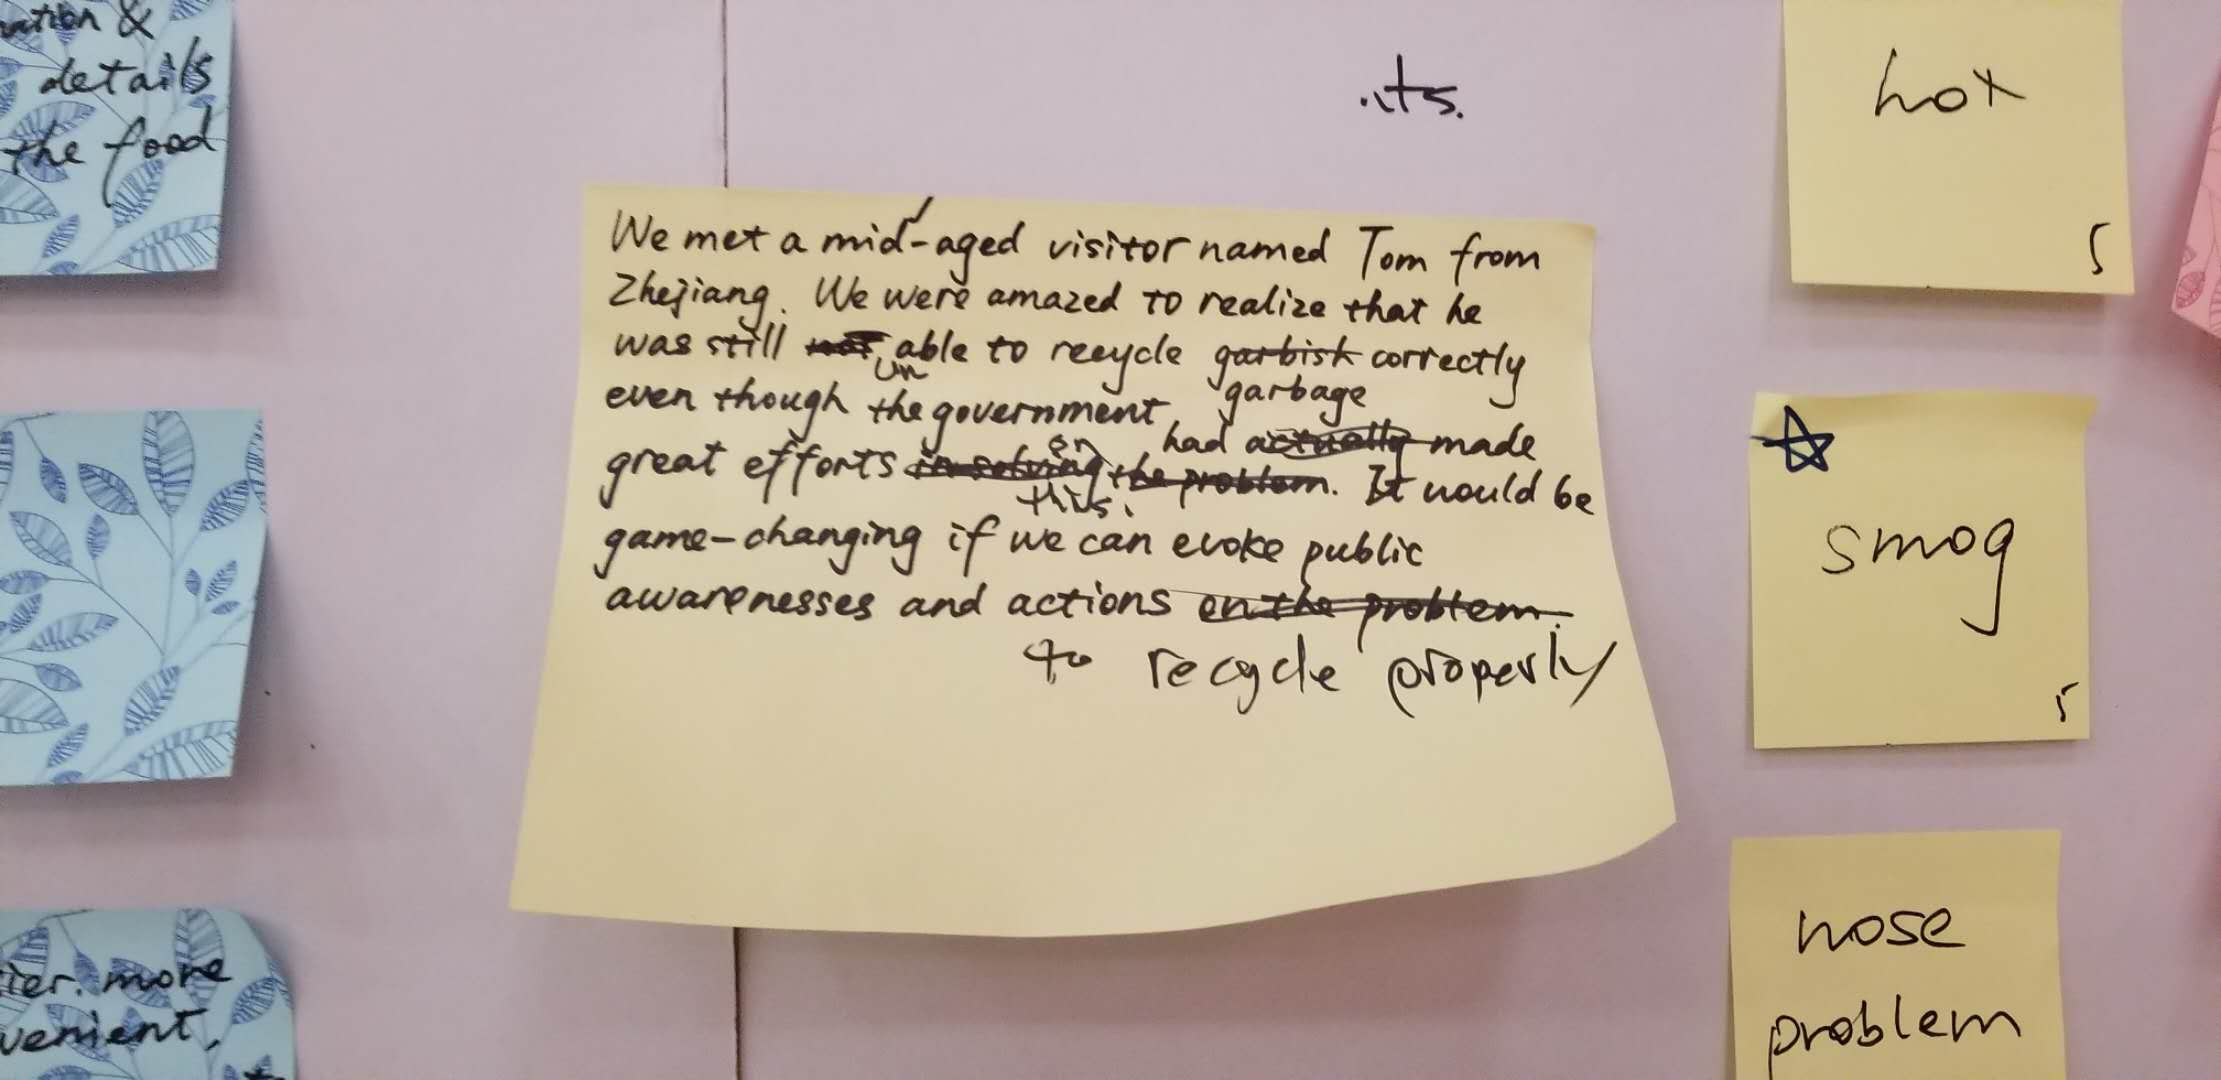 ation &
details
the food
ier. more
venient,
its.
We met a mid-aged visitor named Tom from
Zhejiang. We were amazed to realize that he
was still not unable to recycle garbish correctly
garbage
even though the government had actually made
great efforts in solving the problem. on this. It would be
game-changing if we can evoke public
awarenesses and actions on the problem.
to recycle properly
hot
5
smog
5
nose
problem